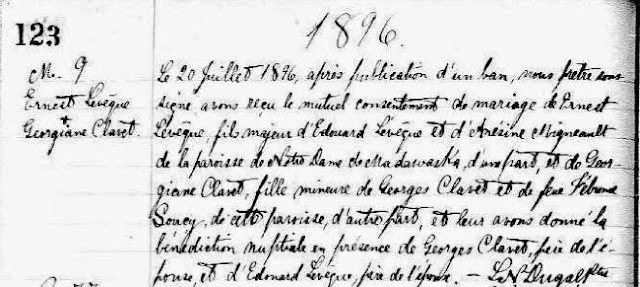 123
1896.
M. 9
Ernest Levêque
+
Georgiane Clavet.
Le 20 Juillet 1896, après publication d'un ban, nous prêtre sous
signé avons reçu le mutuel consentement de mariage de Ernest
Levêque, fils majeur d'Edouard Levêque et d'Arésine Migneault
de la paroisse de Notre Dame de Madawaska, d'une part, et de Geor-
giane Clavet, fille mineure de Georges Clavet et de feue
Soucy, de cette paroisse, d'autre part, et leur avons donné la
bénédiction nuptiale en présence de Georges Clavet, père de l'é-
pouse, et d'Edouard Levêque, père de l'époux. — L.N. Dugal Ptre